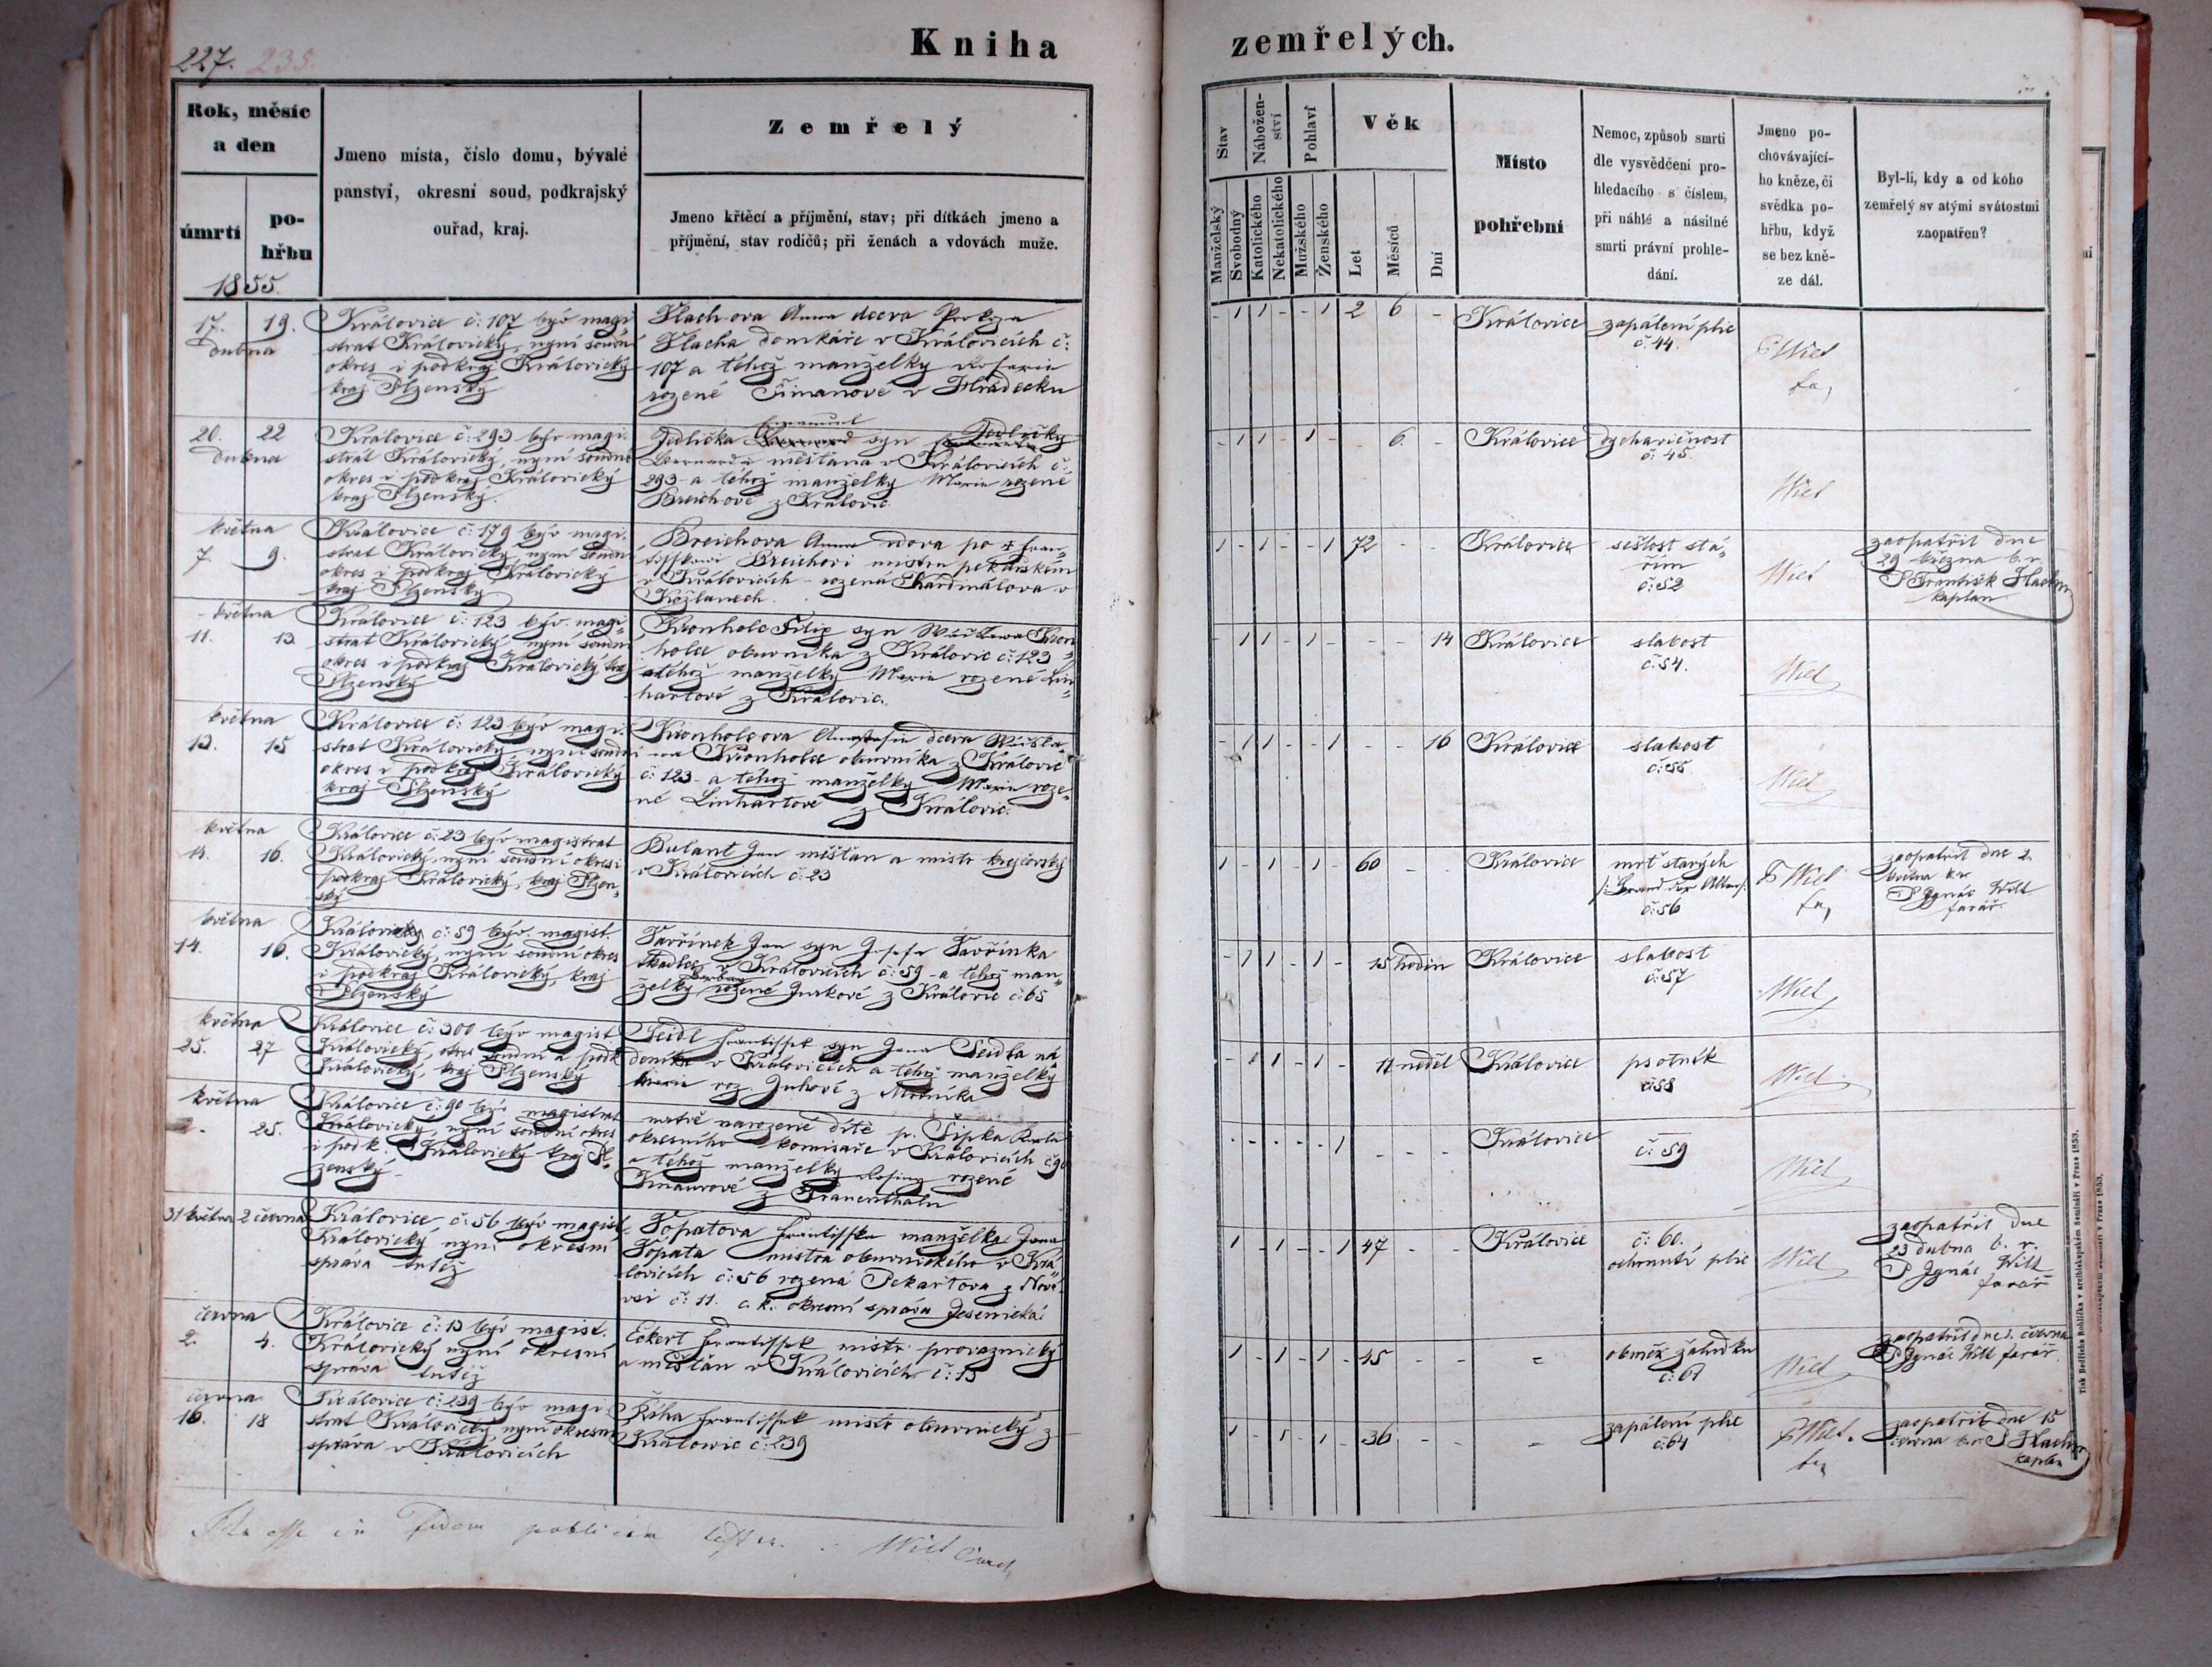 227. 235.
Kniha zemřelých.
Rok, měsíc a den
úmrtí
pohřbu
1855.
Jmeno místa, číslo domu, bývalé panství, okresní soud, podkrajský ouřad, kraj.
Zemřelý
Jmeno křtěcí a příjmění, stav; při dítkách jmeno a příjmění, stav rodičů; při ženách a vdovách muže.
Stav
Manželský
Svobodný
Nábožen-
ství
Katolického
Nekatolického
Pohlaví
Mužského
Ženského
Věk
Let
Měsíců
Dní
Místo
pohřební
Nemoc, způsob smrti
dle vysvědčení pro-
hledacího s číslem,
při náhlé a násilné
smrti právní prohle-
dání.
Jmeno po-
chovávající-
ho kněze, či
svědka po-
hřbu, když
se bez kně-
ze dál.
Byl-li, kdy a od koho
zemřelý sv atými svátostmi
zaopatřen?
17. 19.
dubna
Královice č: 107 býv magi
strat Královický, nyní soudní
okres i podkraj Královický
kraj Plzenský
Hlachova Anna dcera Prokopa
Hlacha domkáře v Královicích č:
107 a téhož manželky
rozené Šimanové v Hradecku
- 1 1 - - 1 2 6 -
Královice
zapálení plic
č. 44.
Wild
fa,
20. 22
dubna
Královice č: 293 býv magi-
strát Královický, nyní soudní
okres i podkraj Královický
kraj Plzenský.
Jedlička syn Jedličky
Bernarda měšťana v Královicích č:
293 a téhož manželky Marie rozené
Breichové z Královic
- 1 1 - 1 - - 6. -
Královice
dychavičnost
č: 45.
Wild
května
7. 9.
Královice č: 179 býv magi.
strat Královický nyní soudní
okres i podkraj Královický
kraj Plzenský
Breichova Anna vdova po + Fran-
tisskovi Breichovi mistru pekařském
v Královicích - rozená Kardinálova v
Kožlanech.
1 - 1 - - 1 72 - -
Královice
sešlost stá-
řím
č: 52
Wild
zaopatřil dne
29 března b. r.
P František Hlach
kaplan
května
11. 13
Královice č: 123 býv. magi-
strat Královický nyní soudní
okres i podkraj Královický kraj
Plzenský
Kronholc Filip syn Kron-
holce obuvníka z Královic č: 123
a téhož manželky Marie rozené Lin-
hartové z Královic.
- 1 1 - 1 - - - 14
Královice
slabost
č: 54.
Wild
května
13. 15
Královice č: 123 býv magi-
strat Královický nyní soudní
okres i podkraj Královický
kraj Plzenský
Kronholcova Anastasia dcera
na Kronholce obuvníka z Královic
č: 123 - a téhož manželky Marie roze-
né Linhartové z Královic.
- 1 1 - - 1 - - 16
Královice
slabost
č: 55
Wild
května
14. 16.
Královice č: 23 býv magistrat
Královický, nyní soudní okres i
podkraj Královický, kraj Plzen-
ský
Bulant Jan měšťan a mistr krejčovský
v Královicích č: 23
1 - 1 - 1 - 60 - -
Královice
mrť starých
/: Brand der Alten :/
č: 56
Wild
fa,
zaopatřil dne 2.
května b. r.
P Ignác Wild
farář
května
14. 16.
č: 59 býv. magist.
Královický, nyní soudní okres
i podkraj Královický, kraj
Plzenský
Tavřínek Jan syn Josefa Tavřínka
tkadlce v Královicích č: 59 - a téhož man-
želky rozené Jurkové z Královic č: 65
- 1 1 - 1 - 15 hodin
Královice
slabost
č: 57
Wild
května
25. 27
Královice č: 300 býv magist
Královický, okres soudní a podk
Královický, kraj Plzenský
Seidl Frantissek syn Jana Seidla ná-
deníka v Královicích a téhož manželky
Marie roz. Juhové z
- 1 1 - 1 - 11 neděl
Královice
psotník
č 58
Wild
května
25.
Královice č: 90 býv magistrat
Královický, nyní soudní okres
i podk. Královický kraj Pl-
zenský.
mrtvě narozené dítě p. Šipka Karla
okresního komisaře v Královicích č 90
a téhož manželky rozené
z Frauenthalu
- - - - - 1 - - -
Královice
č: 59
Wild
31 května 2 června
Královice č: 56 býv magist.
Královický nyní okresní
správa tutéž
Topatova Frantisska manželka Jana
Topata mistra obuvnického v Krá-
lovicích č: 56 rozená Pekařtova z Nové
vsi č: 11. c. k. okresní správa Jesenická.
1 - 1 - - 1 47 - -
Královice
č: 60.
ochrnutí plic
Wild
zaopatřil dne
23 dubna b. r.
P Ignác Wild
farář
června
2. 4.
Královice č: 13 býv magist.
Královický nyní okresní
správa tutéž
Eckert Frantissek mistr provaznický
a měšťan v Královicích č: 13
1 - 1 - 1 - 45 - - =
č: 61
Wild
zaopatřil dne 1. června
P Ignác Wild farář
června
16. 18
Královice č: 239 býv magi-
strat Královický nyní okresní
správa v Královicích
Říha Frantissek mistr obuvnický z
Králowic č: 239
1 - 1 - 1 - 36 - - =
zapálení plic
č: 64
Wild.
fa,
zaopatřil dne 15
června b. r. P Hlach
kaplan
Ita esse in fidem publicam testor. Wild
Tisk Bedřicha Rohlíčka v arcibiskupském Semináři v Praze 1853.